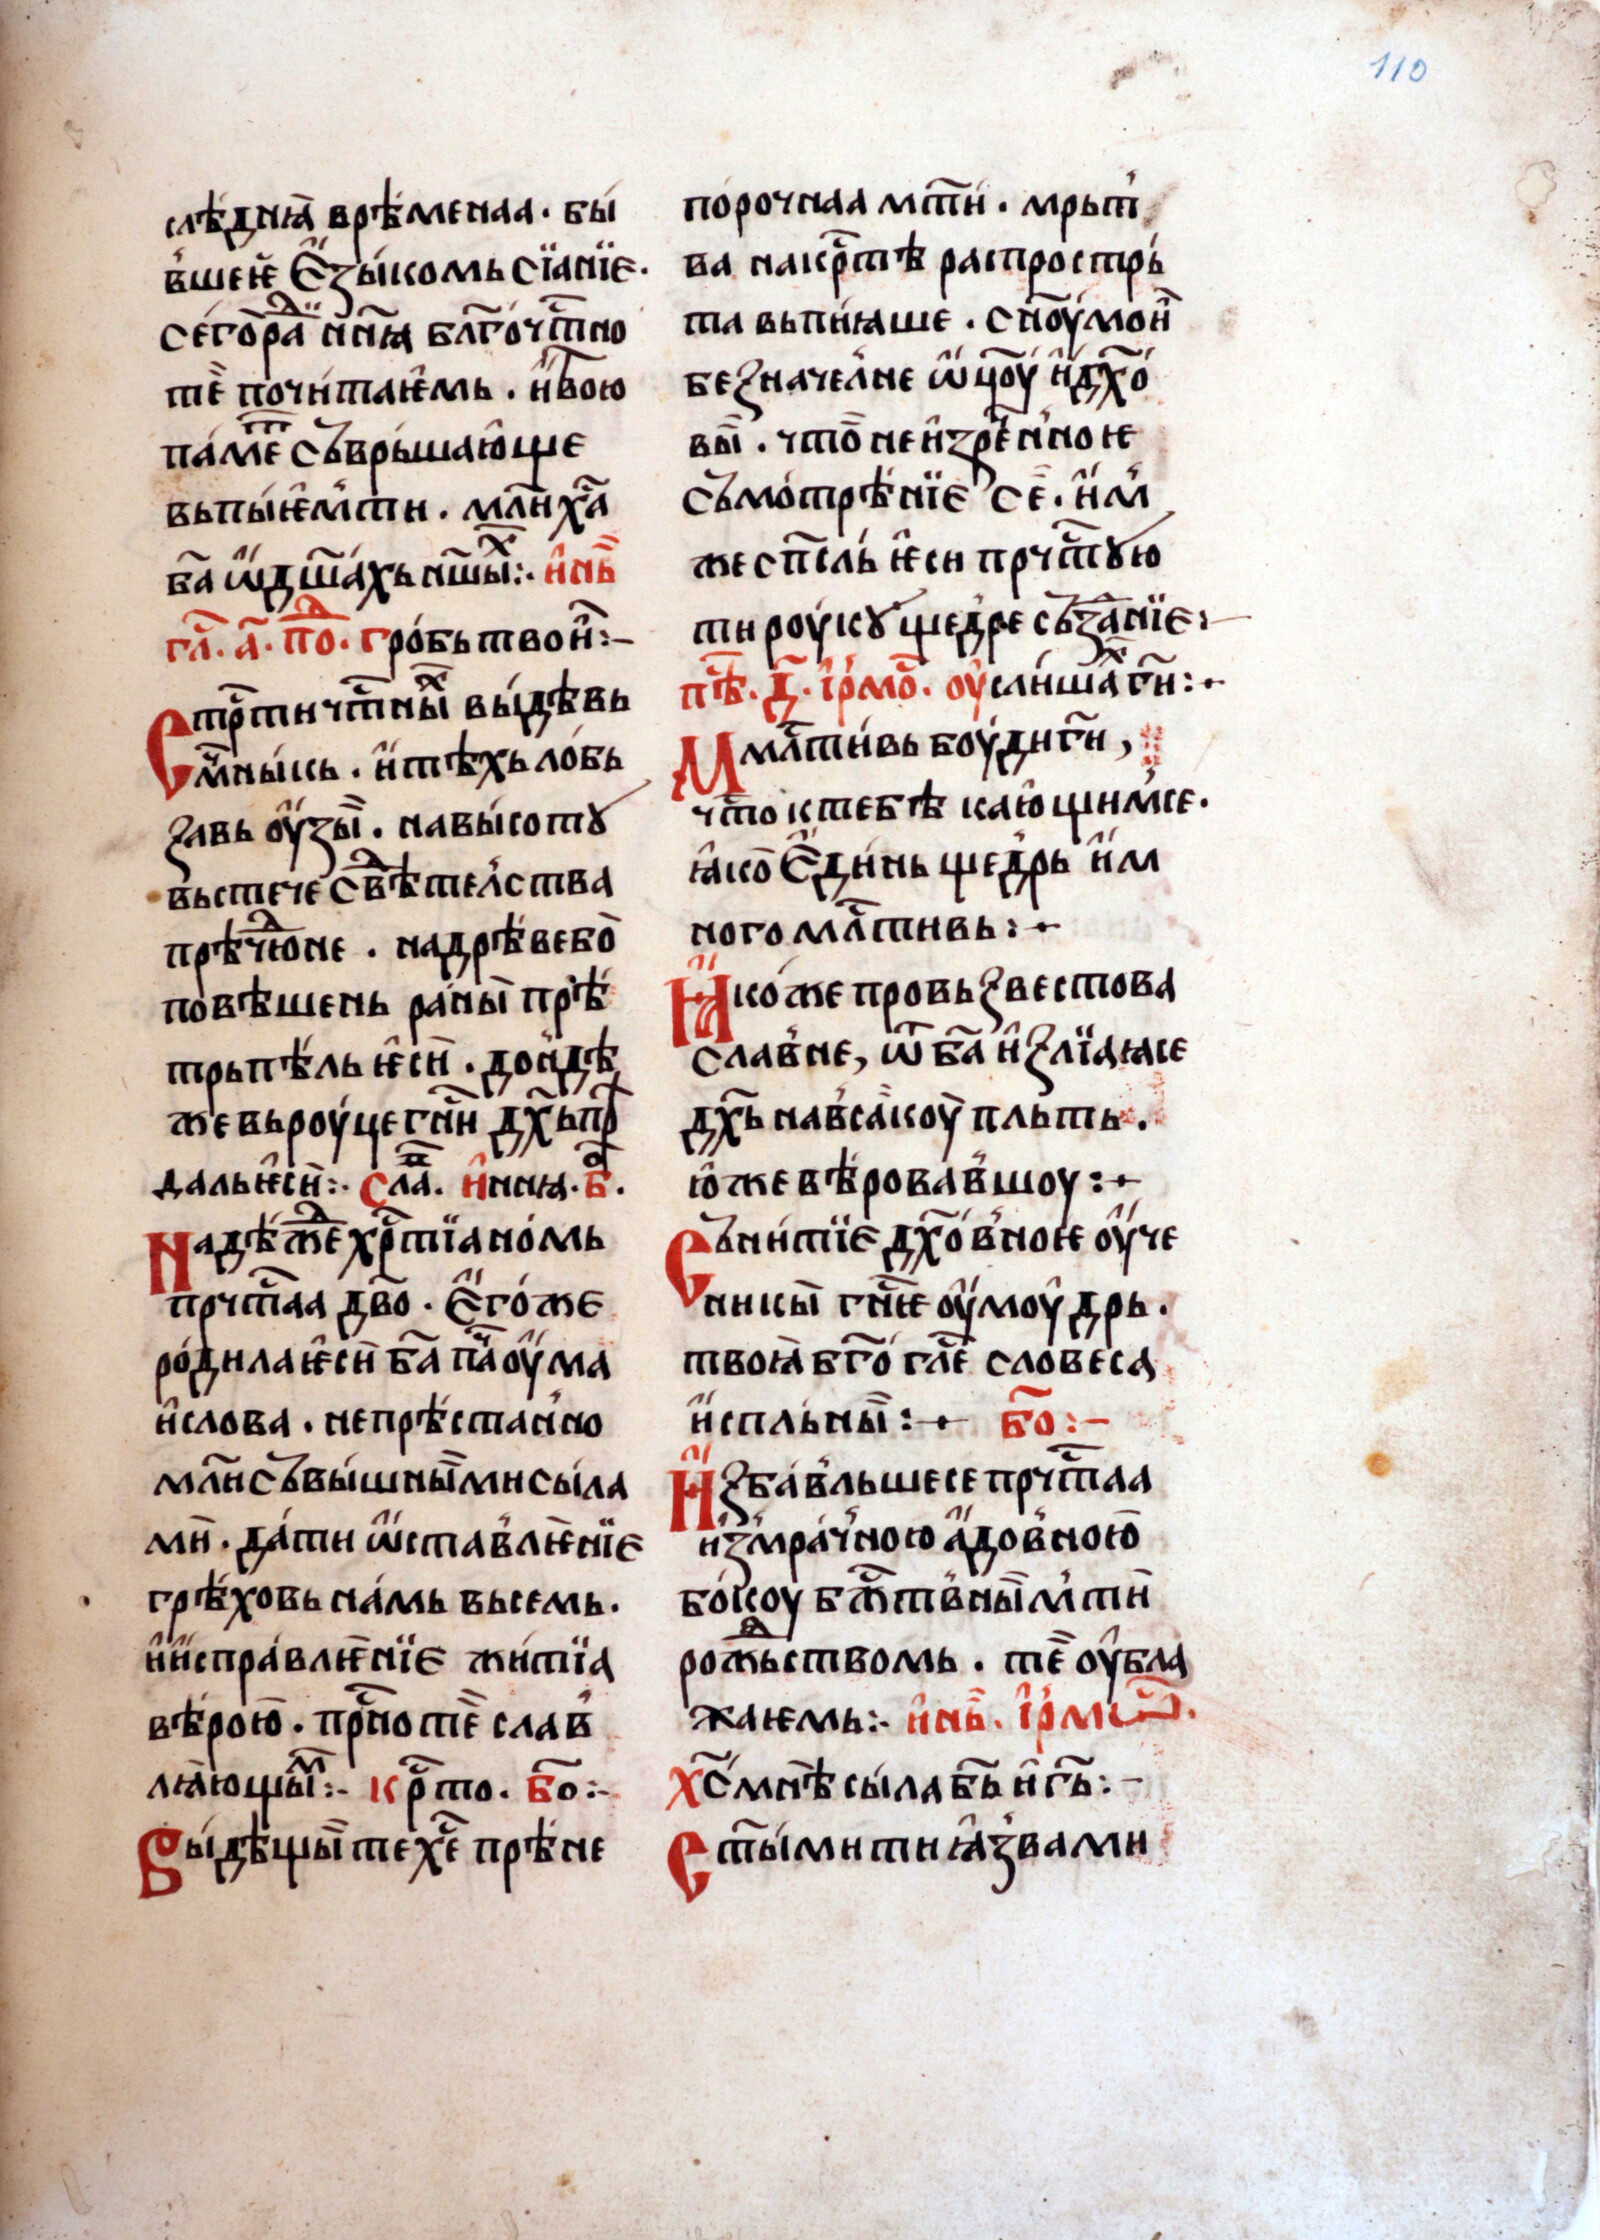 110
слѣднꙗ̀ врѣ́менаа · бы́
в́шеѥ Є҆зы́комь сїа́нїе·
се́го ра́дⷣ и нн҃ꙗ бл҃гоч́тⷭно
те̏ почи́таѥ҆мь · и҆ твою
па́метⷮ съврьша́ю҆ще
вьпы́ѥ҆мтⷭи · мл҃и хⷭа
б҃а ѡ҆ дш҃а́хь нш҃ыⷯ:· и҆нь
гл҃· а҃· поⷣ· гро́бь твои҆:–
Стрⷭти чтⷭныⷯ вы́дѣвь
см҃ныкь · и҆ тѣ́хь ло́бь
завь оу҆зы · на высоту
вьстече свѣдⷣѣтел́ства
прѣчюⷣне · на дрѣве бо
повѣшень ра́ны прѣ́
трьпѣль ѥ҆си · дои҆дѣ
же вь роу́це гн҃и дх҃ь прⷣ
даль ѥ҆си:· Слаⷡ҇· и҆ нн҃ꙗ· Бⷪ҇·
Наде́ждⷣе хрⷭтїа́номь
прчтⷭаа дв҃о · Є҆го́же
роди́ла ѥ҆си б҃а па́че оу҆ма
и҆ слова · непрѣ́стан́но
мл҃и съ вы́шны́ми сы́ла
ми · да́ти ѡ҆став́лѥ́нїе
грѣ́ховь на́мь вьсемь·
и҆ и҆спра́влѥ́нїе жи́тїа
вѣ́рою · прⷭно те слав́
лꙗ́ющыⷨ:– крⷭто· бо҃:–
Вы́дѣщы те хⷭе прѣ́не
по́рочнаа мт҃и · мрьт́
ва на крⷭтѣ распростры́
та вьпи́ꙗше · сн҃оу́ мои҆
безначел́не ѡ҆ц҃оу и҆ дх҃о
вы · что не и҆зрѐн́ноѥ
съмо́трѣ́нїе се · и҆м́
же сп҃сль ѥ҆си прчтⷭую
ти роу́ку ще́дре съзⷣа́нїе:–
Пⷭѣ· д҃· і҆рмо· оу҆слы́шаⷯ ги҃:·
Млⷭти́вь боу́ди ги҃,
что к тебѣ каю҆щим́се·
ꙗ҆ко Є҆ди́нь ще́дрь и҆ м
ного млⷭтивь:·
Ꙗ҆ко́же провьзвестова
слав́не, ѿ б҃а и҆злїа́ꙗсе
дх҃ь на в́са́коу пльть·
ю҆же вѣ́ровав́шоу:·
Съни́тїе дх҃о́в́ноѥ оу҆че
никы гн҃ѥ оу҆моу́дрь·
твоꙗ̀ бг҃о́ гл҃е словеса
и҆сплъны:· бо҃:–
И҆зба́в́льшесе прчтⷭаа
из́мра́ч́ною а҆дов́ною
бо́коу бжⷭтв́ны м́ти
рождⷣьствомь · те оу҆бла
жаѥмь:· и҆нь· і҆рмⷪ҇сь·
Хⷭ мнѣ сы́ла бь҃ и҆ гь҃:–
Ст҃ы́ми ти ꙗ҆звами